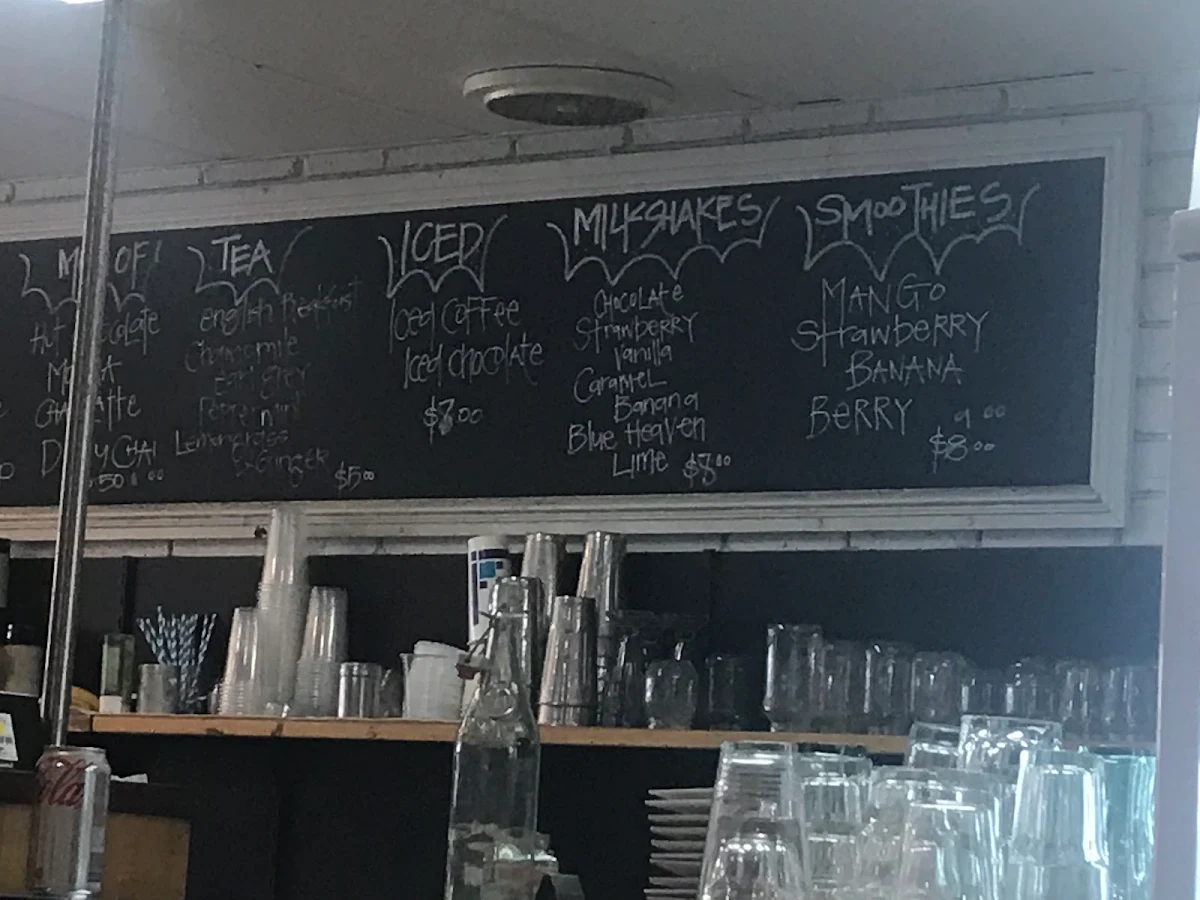 TEA
english Breakfast
Chamomile
Earl grey
Peppermint
Lemongrass
& Ginger
$5.00
ICED
Iced coffee
Iced chocolate
$7.00
MILKSHAKES
Chocolate
Strawberry
Vanilla
Caramel
Banana
Blue Heaven
Lime $7.00
SMOOTHIES
MANGO
Strawberry
BANANA
BERRY
$8.00